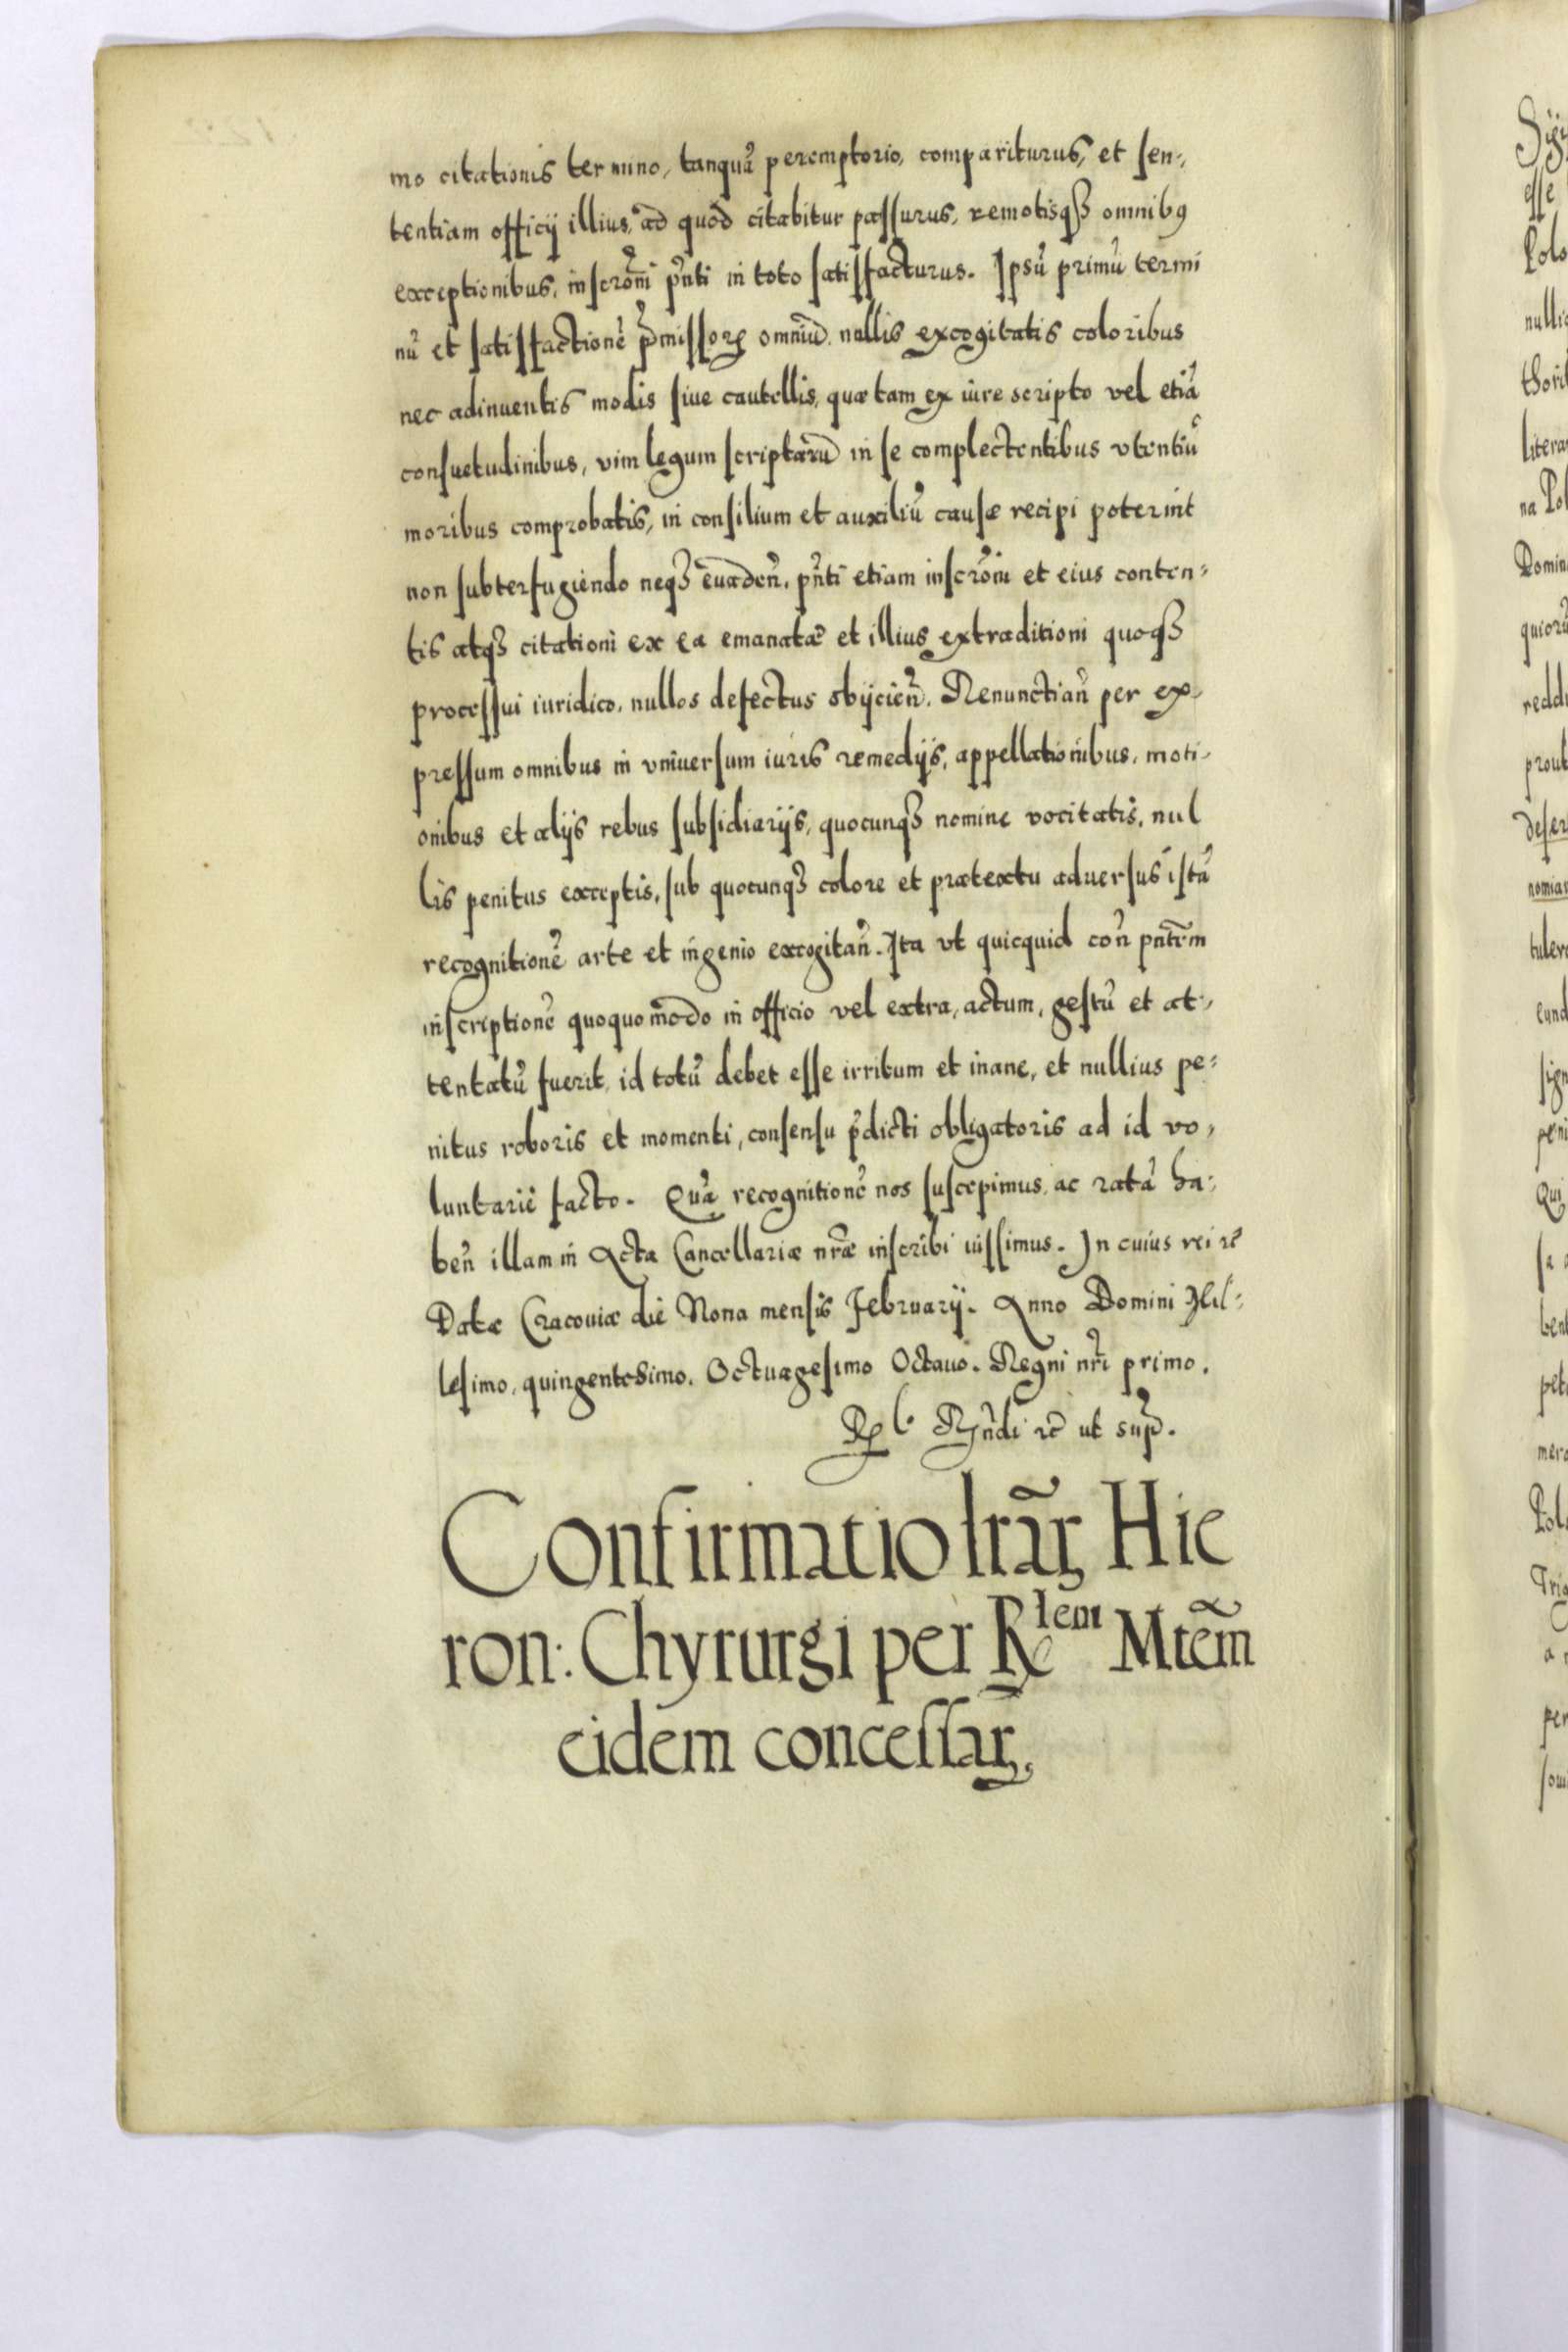 mo citationis termino, tanquã peremptorio, compariturus, et sen-
tentiam officij illius, ad quod citabitur passurus, remotisq3 omnib9
exceptionibus, inscrõni pñti in toto satisfacturus. Ipsũ primũ termi
nũ et satisfactionẽ p̃missorꝝ omniũ nullis excogitatis coloribus
nec adinuentis modis siue cautellis, quæ tam ex iure scripto vel etiã
consuetudinibus, vim legum scriptarũ in se complectentibus vtentiũ
moribus comprobatis, in consilium et auxiliũ causæ recipi poterint
non subterfugiendo neq3 euadeñ, pñti etiam inscrõni et eius conten-
tis atq3 citationi ex ea emanatæ et illius extraditioni quoq3
processui iuridico, nullos defectus obijcieñ. Renunctiañ per ex-
pressum omnibus in vniuersum iuris remedijs, appellationibus, moti-
onibus et alijs rebus subsidiarijs, quocunq3 nomine vocitatis, nul
lis penitus exceptis, sub quocunq3 colore et prætextu aduersus istã
recognitionẽ arte et ingenio excogitañ. Ita vt quicquid coñ pñtem
inscriptionẽ quoquomodo in officio vel extra, actum, gestũ et at-
tentatũ fuerit, id totũ debet esse irritum et inane, et nullius pe-
nitus roboris et momenti, consensu p̃dicti obligatoris ad id vo-
luntariè facto. Quã recognitionẽ nos suscepimus, ac ratã ha-
beñ illam in Acta Cancellariæ nr̃æ inscribi iussimus. In cuius rei ꝛc̃
Datæ Cracouiæ die Nona mensis February. Anno Domini Mil-
lesimo, quingentesimo. Octuagesimo Octauo. Regni nr̃i primo.
ut sup̃.
Confirmatio lrãꝝ Hie
ron: Chyrurgi per R^lem Mtẽm
eidem concessaꝝ.